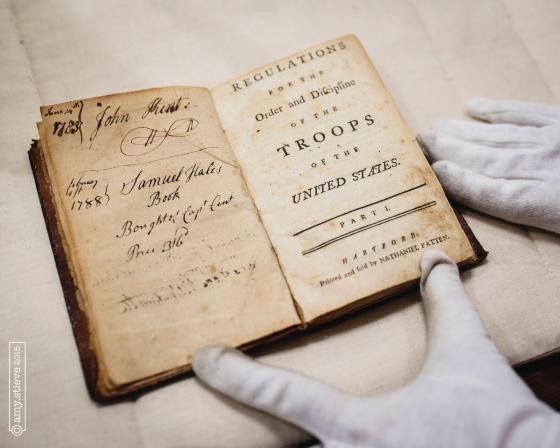 John
1783
Samuel Hales
1788
Book
Bought of Capt
Price 3/6
REGULATIONS
FOR THE
Order and Diſcipline
OF THE
TROOPS
OF THE
UNITED STATES.
PART I.
HARTFORD:
Printed and ſold by NATHANIEL PATTEN.
© amy.stieve 2015